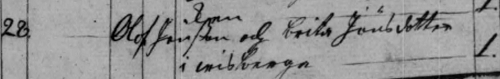 28. Olof Jonsson och Brita Jönsdotter 1.
i wisberga 1.